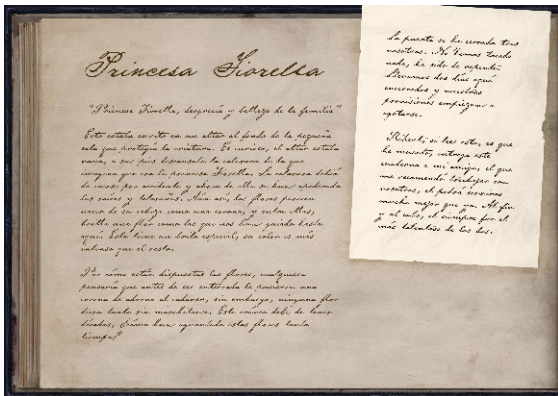 Princesa Fiorella
"Princesa Fiorella, desgracia y belleza de la familia"
Esto estaba escrito en un altar al fondo de la pequeña
sala que protegía la criatura. Es curioso, el altar estaba
vacío, a sus pies descansaba la calavera de la que
imagino que era la princesa Fiorella. La calavera debió
de caerse por accidente y ahora de ella se han apoderado
las raíces y telarañas. Aun así, las flores parecen
nacer de su cabeza como una corona, y entre ellas,
brilla una flor como las que nos han guiado hasta
aquí. Esta tiene un brillo especial, su color es más
intenso que el resto.
Por cómo están dispuestas las flores, cualquiera
pensaría que antes de ser enterrada le pusieron una
corona de adorno al cadáver, sin embargo, ninguna flor
dura tanto sin marchitarse. Este cadáver debe de tener
décadas, ¿cómo han aguantado estas flores tanto
tiempo?
La puerta se ha cerrado tras
nosotros. No hemos tocado
nada, ha sido de repente.
Llevamos dos días aquí
encerrados y nuestras
provisiones empiezan a
agotarse.
si lees esto, es que
he muerto, entrega este
cuaderno a mi amigo, el que
me recomendó trabajar con
vosotros, él podrá serviros
mucho mejor que yo. Al fin
y al cabo, él siempre fue el
más talentoso de los dos.